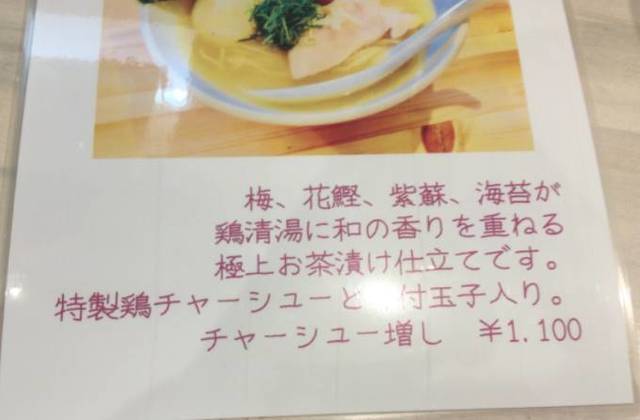 梅、花鰹、紫蘇、海苔が
鶏清湯に和の香りを重ねる
極上お茶漬け仕立てです。
特製鶏チャーシューと 付玉子入り。
チャーシュー増し ￥1.100